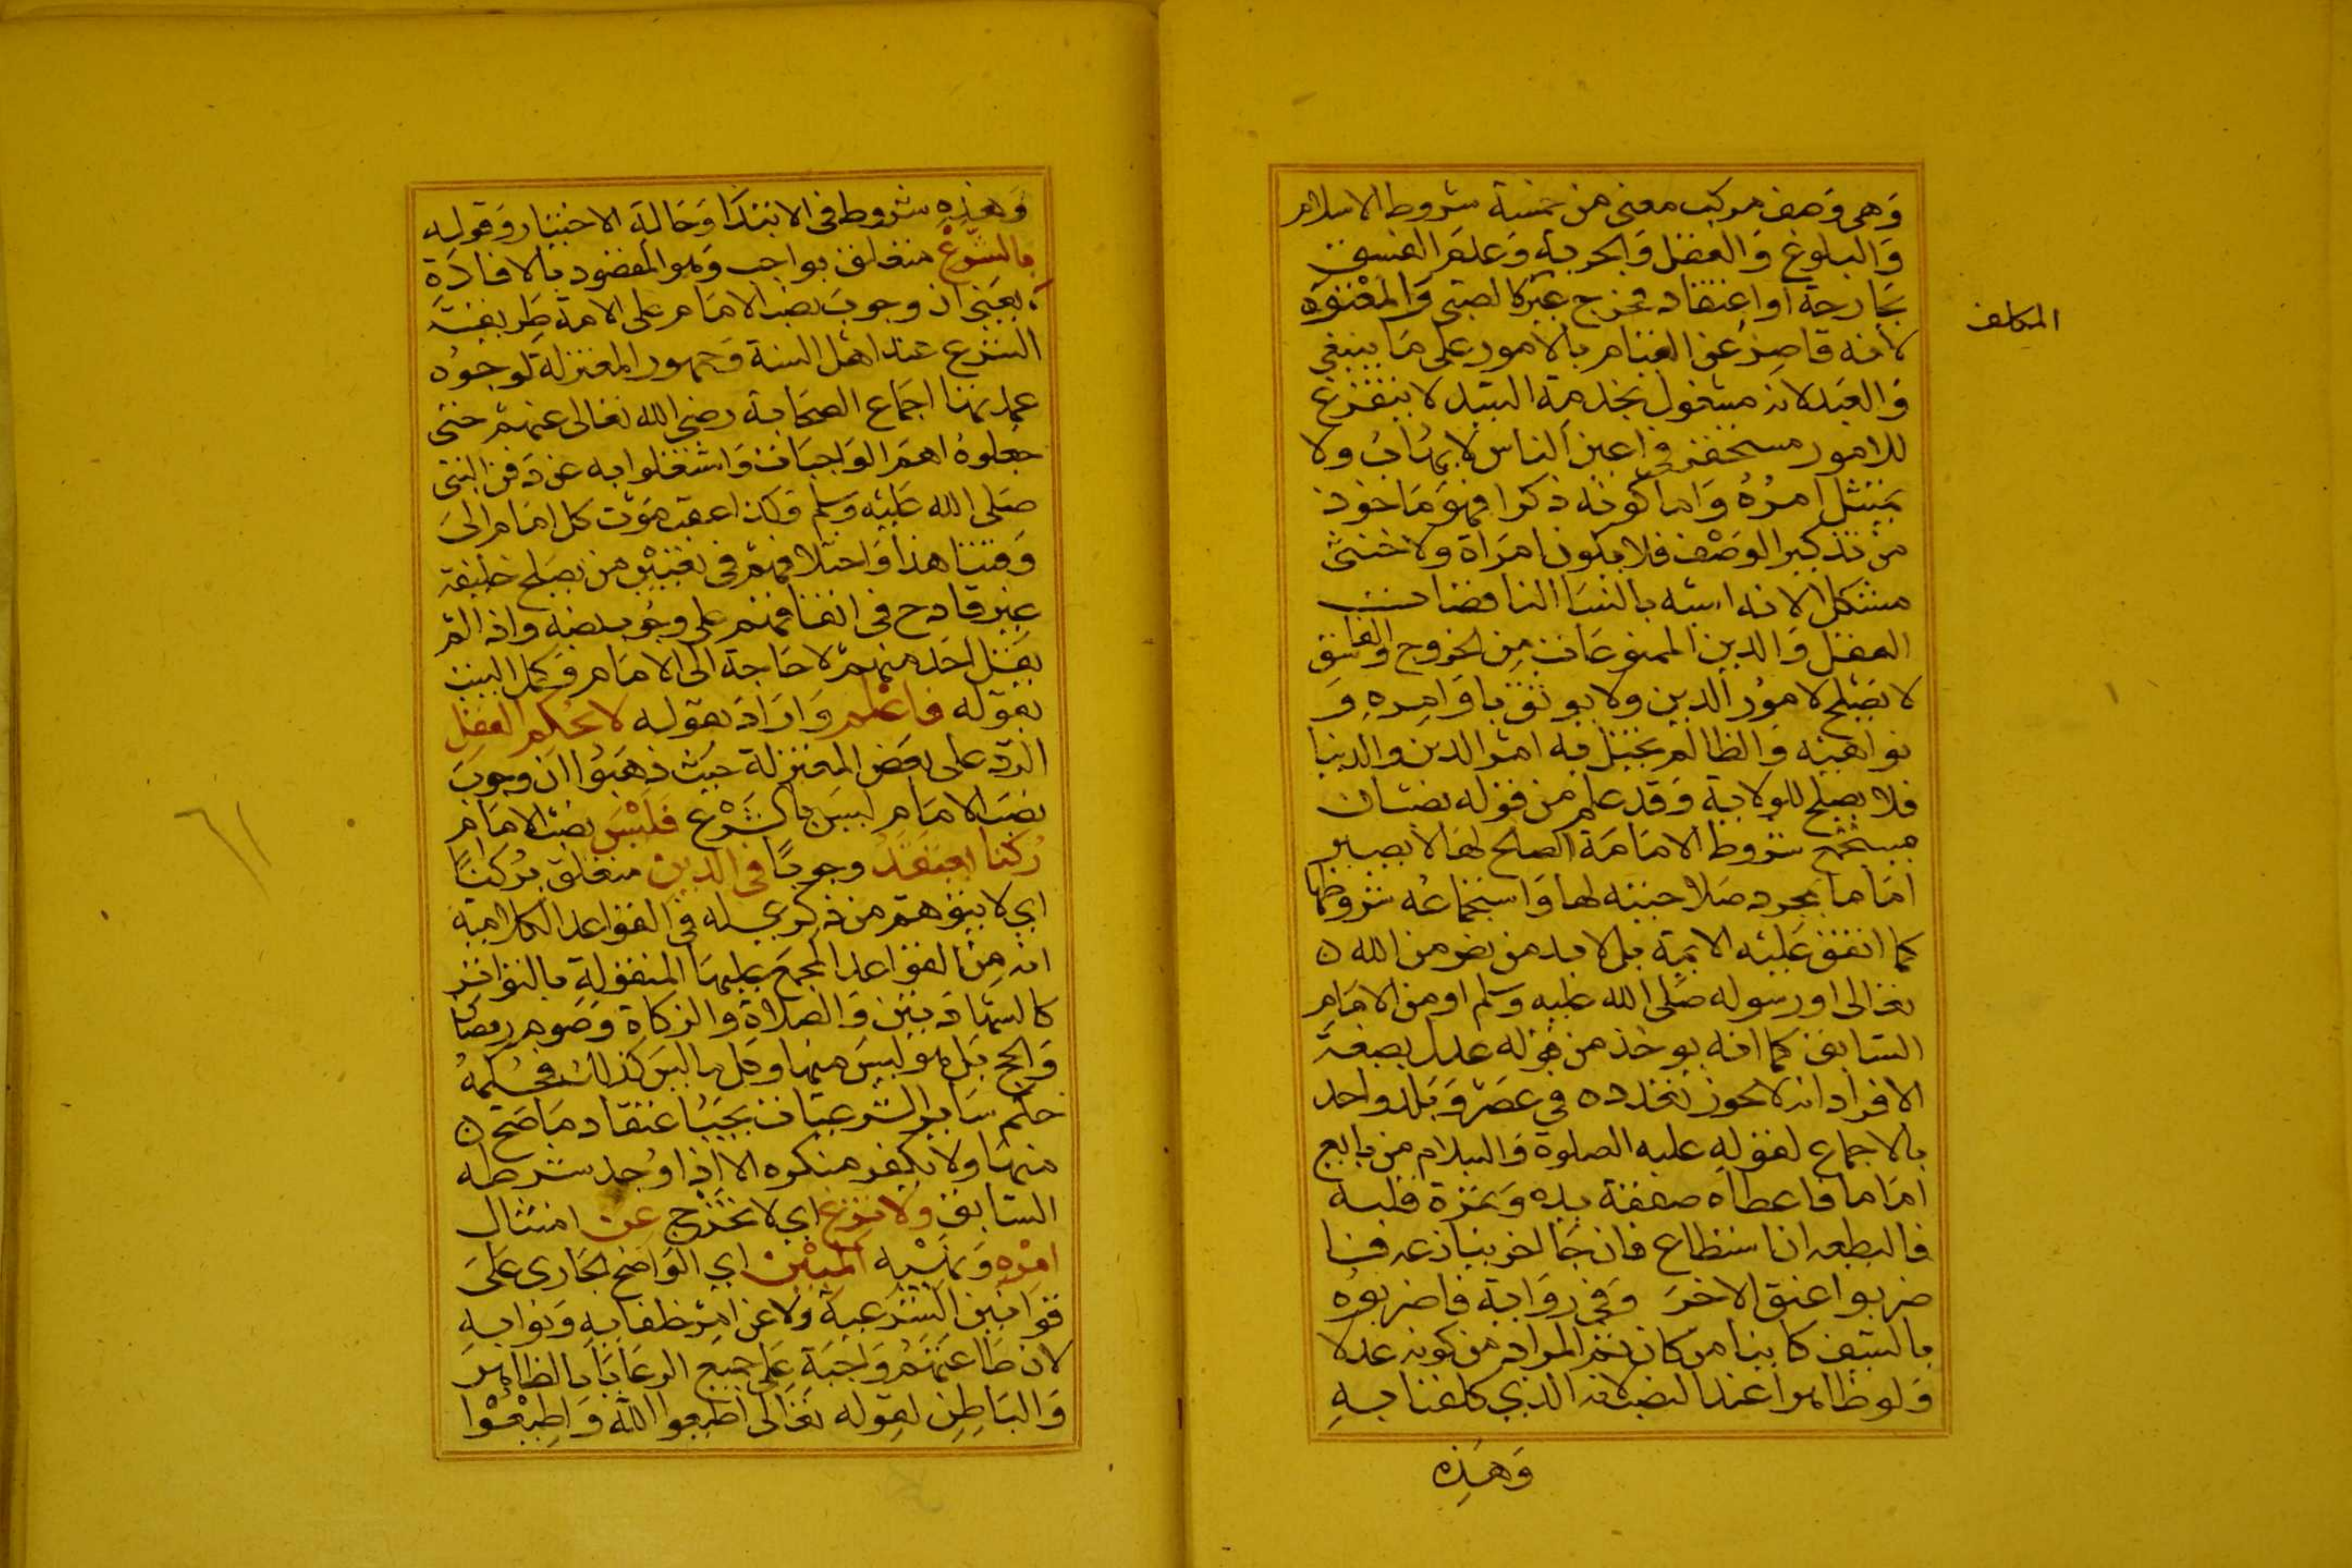 وهى وصف مركب معنى من خمسة شروط الاسلام
والبلوغ والعقل والحرية وعدم الفسق
بجارحة او اعتقاد فخرج غير كالصبى والمعتوه
المكلف
لانه قاصر عن القيام بالامور على ما ينبغى
والعبد لانه مشغول بخدمة السيد لا يتفرغ
للامور مستحقر فى اعين الناس لا يهاب ولا
يمتثل امره واما كونه ذكرا فهو ماخوذ
من تذكير الوصف فلا يكون امراة ولا خنثى
مشكل لانه اشبه بالنسا الناقصات
العقل والدين الممنوعات من الخروج والفاسق
لا يصلح لامور الدين ولا يوثق باوامره و
نواهيه والظالم يختل به امر الدين والدنيا
فلا يصلح للولاية وقد علم من قوله نصبان
مستجمع شروط الامامة الصالح لها لا يصير
اماما بمجرد صلاحيته لها واستجماعه شروطها
كما اتفق عليه الايمة بل لا بد من نص من الله
تعالى او رسوله صلى الله عليه وسلم او من الامام
السابق كما انه يوخذ من قوله عدل بصيغة
الافراد انه لا يجوز تعدده فى عصر وبلد واحد
بالاجماع لقوله عليه الصلوة والسلام من بايع
اماما فاعطاه صفقة يده وثمرة قلبه
فاليطعه ان استطاع فان جا اخر ينازعه فا
ضربوا عنق الاخر وفى رواية فاضربوه
بالسيف كاينا من كان ثم المراد من كونه عدلا
ولو ظاهرا عند النصب لانه الذى كلفنا به
وهذه
وهذه شروط فى الابتدا وحالة الاختيار وقوله
بالشرع متعلق بواجب وهو المقصود بالافادة
يعنى ان وجوب نصب الامام على الامة طريقه
الشرع عند اهل السنة وجمهور المعتزلة لوجوه
عمدتها اجماع الصحابة رضى الله تعالى عنهم حتى
جعلوه اهم الواجبات واشتغلوا به عن دفن النبى
صلى الله عليه وسلم وكذا عقب موت كل امام الى
وقتنا هذا واختلافهم فى تعيين من يصلح خليفة
غير قادح فى اتفاقهم على وجوب نصبه واذا لم
يقل احد منهم لا حاجة الى الامام وكمل البيت
بقوله فاعلم واراد بقوله لا بحكم العقل
الرد على بعض المعتزلة حيث ذهبوا ان وجوب
نصب الامام ليس بالشرع فليس نصب الامام
ركنا يعتقد وجوبا فى الدين متعلق بركنا
اى لا يتوهم من ذكرى له فى القواعد الكلامية
انه من القواعد المجمع عليها المنقولة بالتواتر
كالشهادتين والصلاة والزكاة وصوم رمضان
والحج بل هو ليس منها وكل ما ليس كذلك فحكمه
حكم ساير الشرعيات يجب اعتقاد ما صح
منها ولا يكفر منكره الا اذا وجد شرطه
السابق ولا تزغ اى لا تخرج عن امتثال
امره ونهيه المبين اى الواضح الجارى على
قوانين الشرعية ولا عن امر خلفايه ونوابه
لان طاعتهم واجبة على جميع الرعايا بالظاهر
والباطن لقوله تعالى اطيعوا الله واطيعوا